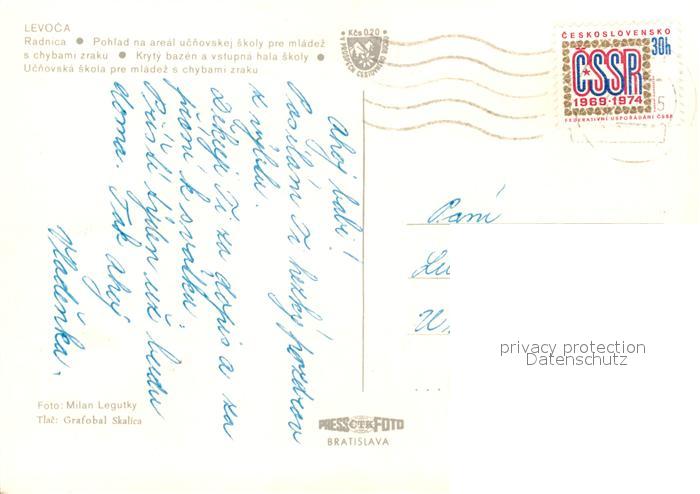 LEVOČA
Radnica ● Pohľad na areál učňovskej školy pre mládež
s chybami zraku ● Krytý bazén a vstupná hala školy ●
Učňovská škola pre mládež s chybami zraku
Kčs 0.20
ČESKOSLOVENSKO
30h
ČSSR
1969-1974
FEDERATIVNÍ USPOŘÁDÁNÍ ČSSR
5
Ahoj babi!
Posílám Ti hezký pozdrov
z výletu.
Děkuji Ti za dopis a za
přání k svátku.
Příští týden už budu
doma. Tak ahoj
Vladěnka.
Paní
Lu
privacy protection
Datenschutz
Foto: Milan Legutky
Tlač: Grafobal Skalica
PRESSČTKFOTO
BRATISLAVA